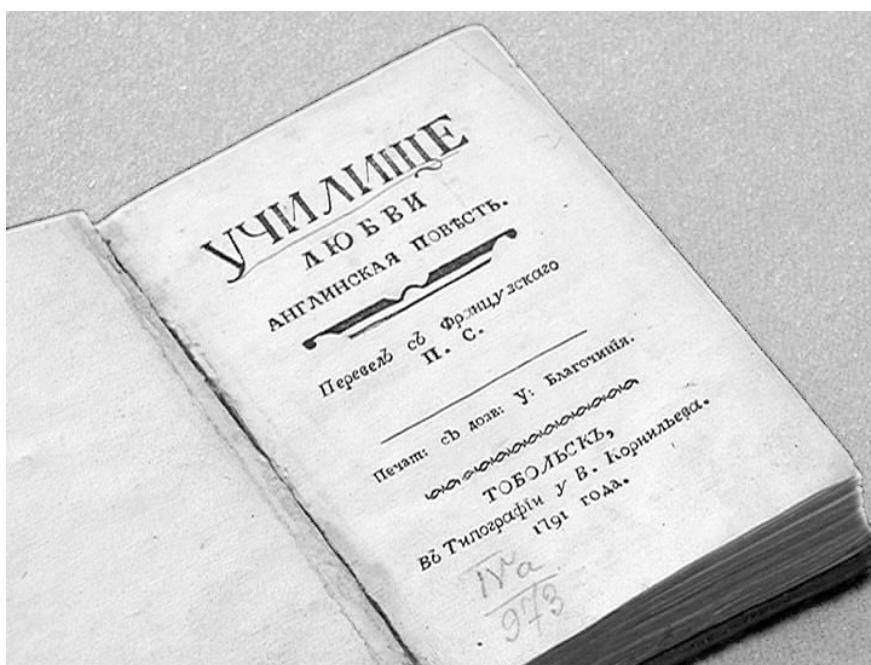 УЧИЛИЩЕ
ЛЮБВИ
АНГЛИНСКАЯ ПОВѢСТЬ.
Перевелъ съ Французскаго
П. С.
Печат: съ дозв: У: Благочинія.
ТОБОЛЬСКЪ,
Въ Типографіи у В. Корнильева.
1791 года.
IVа
973